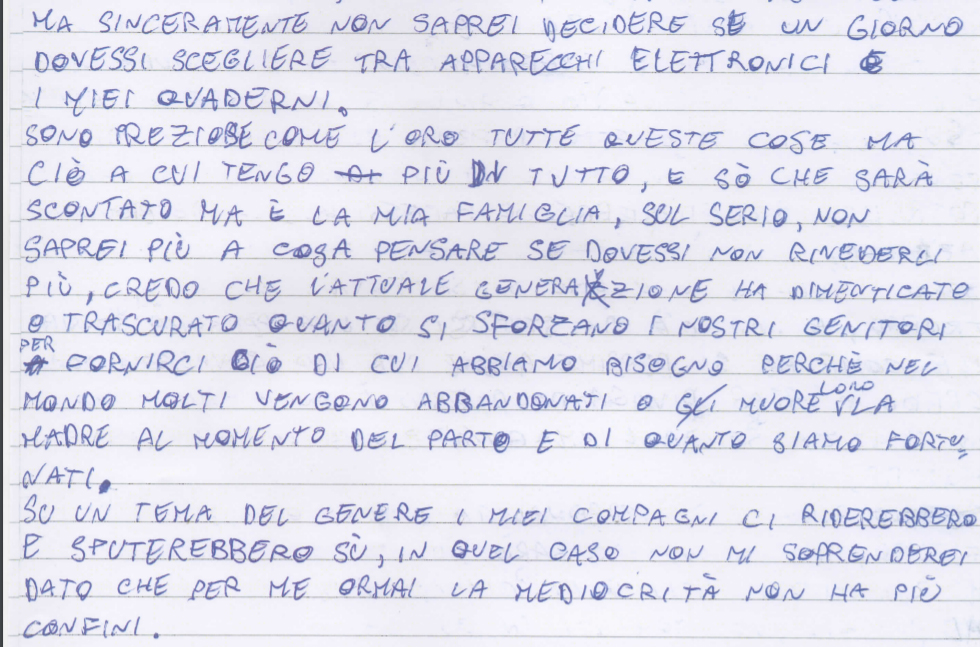 MA SINCERAMENTE NON SAPREI DECIDERE SE UN GIORNO
DOVESSI SCEGLIERE TRA APPARECCHI ELETTRONICI E
I MIEI QUADERNI.
SONO PREZIOSE COME L'ORO TUTTE QUESTE COSE MA
CIÒ A CUI TENGO PIÙ DI TUTTO, E SÒ CHE SARÀ
SCONTATO MA È LA MIA FAMIGLIA, SUL SERIO, NON
SAPREI PIÙ A COSA PENSARE SE DOVESSI NON RIVEDERLI
PIÙ, CREDO CHE L'ATTUALE GENERAZIONE HA DIMENTICATO
O TRASCURATO QUANTO SI SFORZANO I NOSTRI GENITORI
PER FORNIRCI CIÒ DI CUI ABBIAMO BISOGNO PERCHÈ NEL
MONDO MOLTI VENGONO ABBANDONATI O MUORE LORO LA
MADRE AL MOMENTO DEL PARTO E DI QUANTO SIAMO FORTU=
NATI.
SU UN TEMA DEL GENERE I MIEI COMPAGNI CI RIDEREBBERO
E SPUTEREBBERO SÙ, IN QUEL CASO NON MI SOPRENDEREI
DATO CHE PER ME ORMAI LA MEDIOCRITÀ NON HA PIÙ
CONFINI.